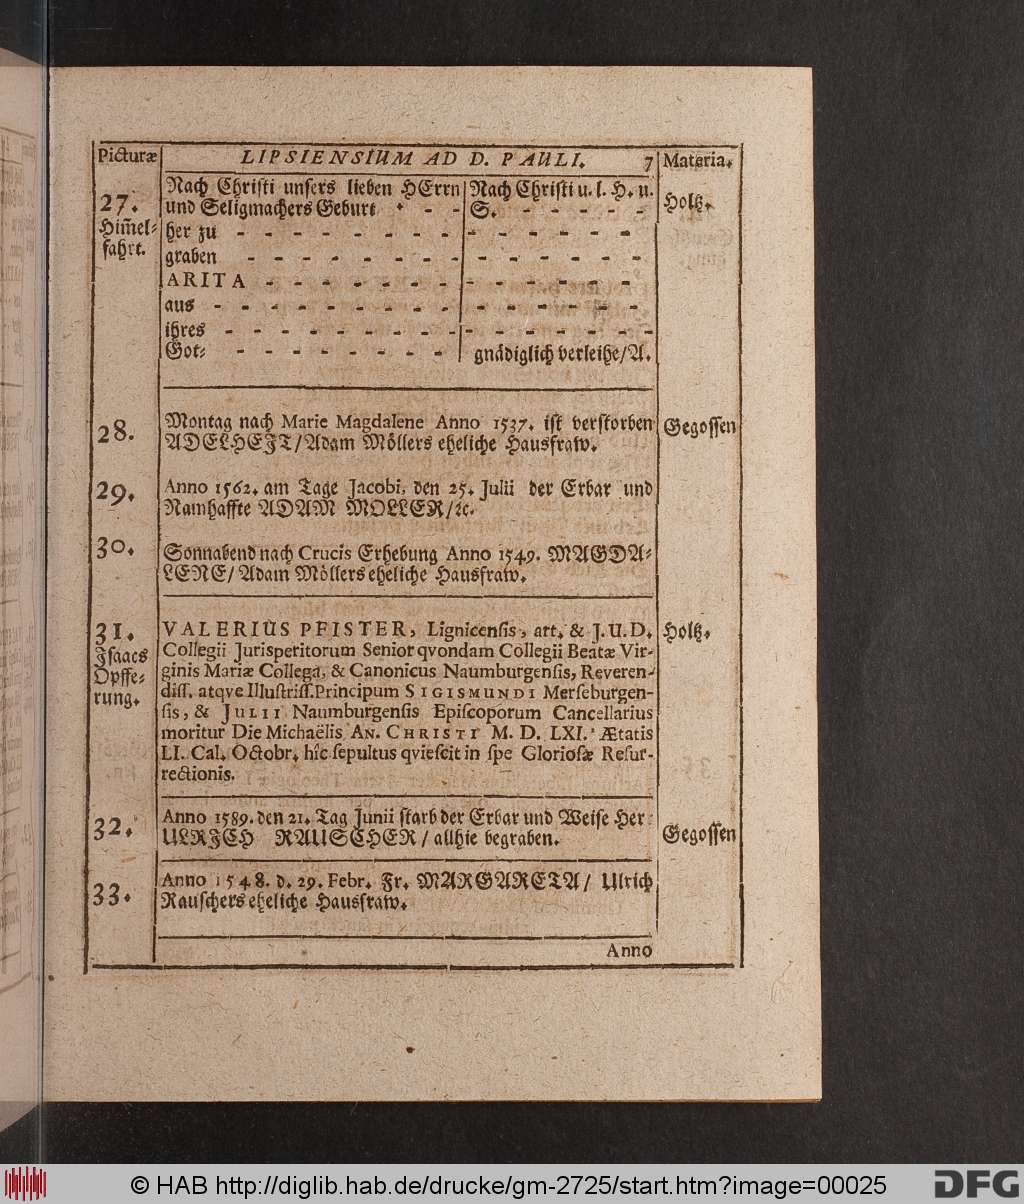 Picturæ LIPSIENSIUM AD D. PAULI. 7 Materia.
27. Nach Christi unsers lieben HErrn Nach Christi u. l. H. u. Holtz.
und Seligmachers Geburt - - - S. - - - - - -
Him̃el- her zu - - - - - - - - - - - - - -
fahrt. graben - - - - - - - - - - - - - -
ARITA - - - - - - - - - - - - - -
aus - - - - - - - - - - - - - - -
ihres - - - - - - - - - - - - - - -
Got- - - - - - - - - gnädiglich verleihe/A.
28. Montag nach Marie Magdalene Anno 1537. ist verstorben Gegossen
ADELHEJT/Adam Möllers eheliche Hausfraw.
29. Anno 1562. am Tage Jacobi, den 25. Julii der Erbar und
Namhaffte ADAM MOLLER/ꝛc.
30. Sonnabend nach Crucis Erhebung Anno 1549. MAGDA-
LENE/ Adam Möllers eheliche Hausfraw.
31. VALERIUS PFISTER, Lignicensis, art. & J. U. D. Holtz.
Jsaacs Collegii Jurisperitorum Senior qvondam Collegii Beatæ Vir-
Opffe- ginis Mariæ Collega, & Canonicus Naumburgensis, Reveren-
rung. diss. atqve Illustriss. Principum SIGISMUNDI Merseburgen-
sis, & JULII Naumburgensis Episcoporum Cancellarius
moritur Die Michaëlis AN. CHRISTI M. D. LXI. Ætatis
LI. Cal. Octobr. hîc sepultus qviescit in spe Gloriosæ Resur-
rectionis.
32. Anno 1589. den 21. Tag Junii starb der Erbar und Weise Her: Gegossen
ULRJCH RAUSCHER/ allhie begraben.
33. Anno 1548. d. 29. Febr. Fr. MARGARETA/ Ulrich
Rauschers eheliche Hausfraw.
Anno
© HAB http://diglib.hab.de/drucke/gm-2725/start.htm?image=00025
DFG